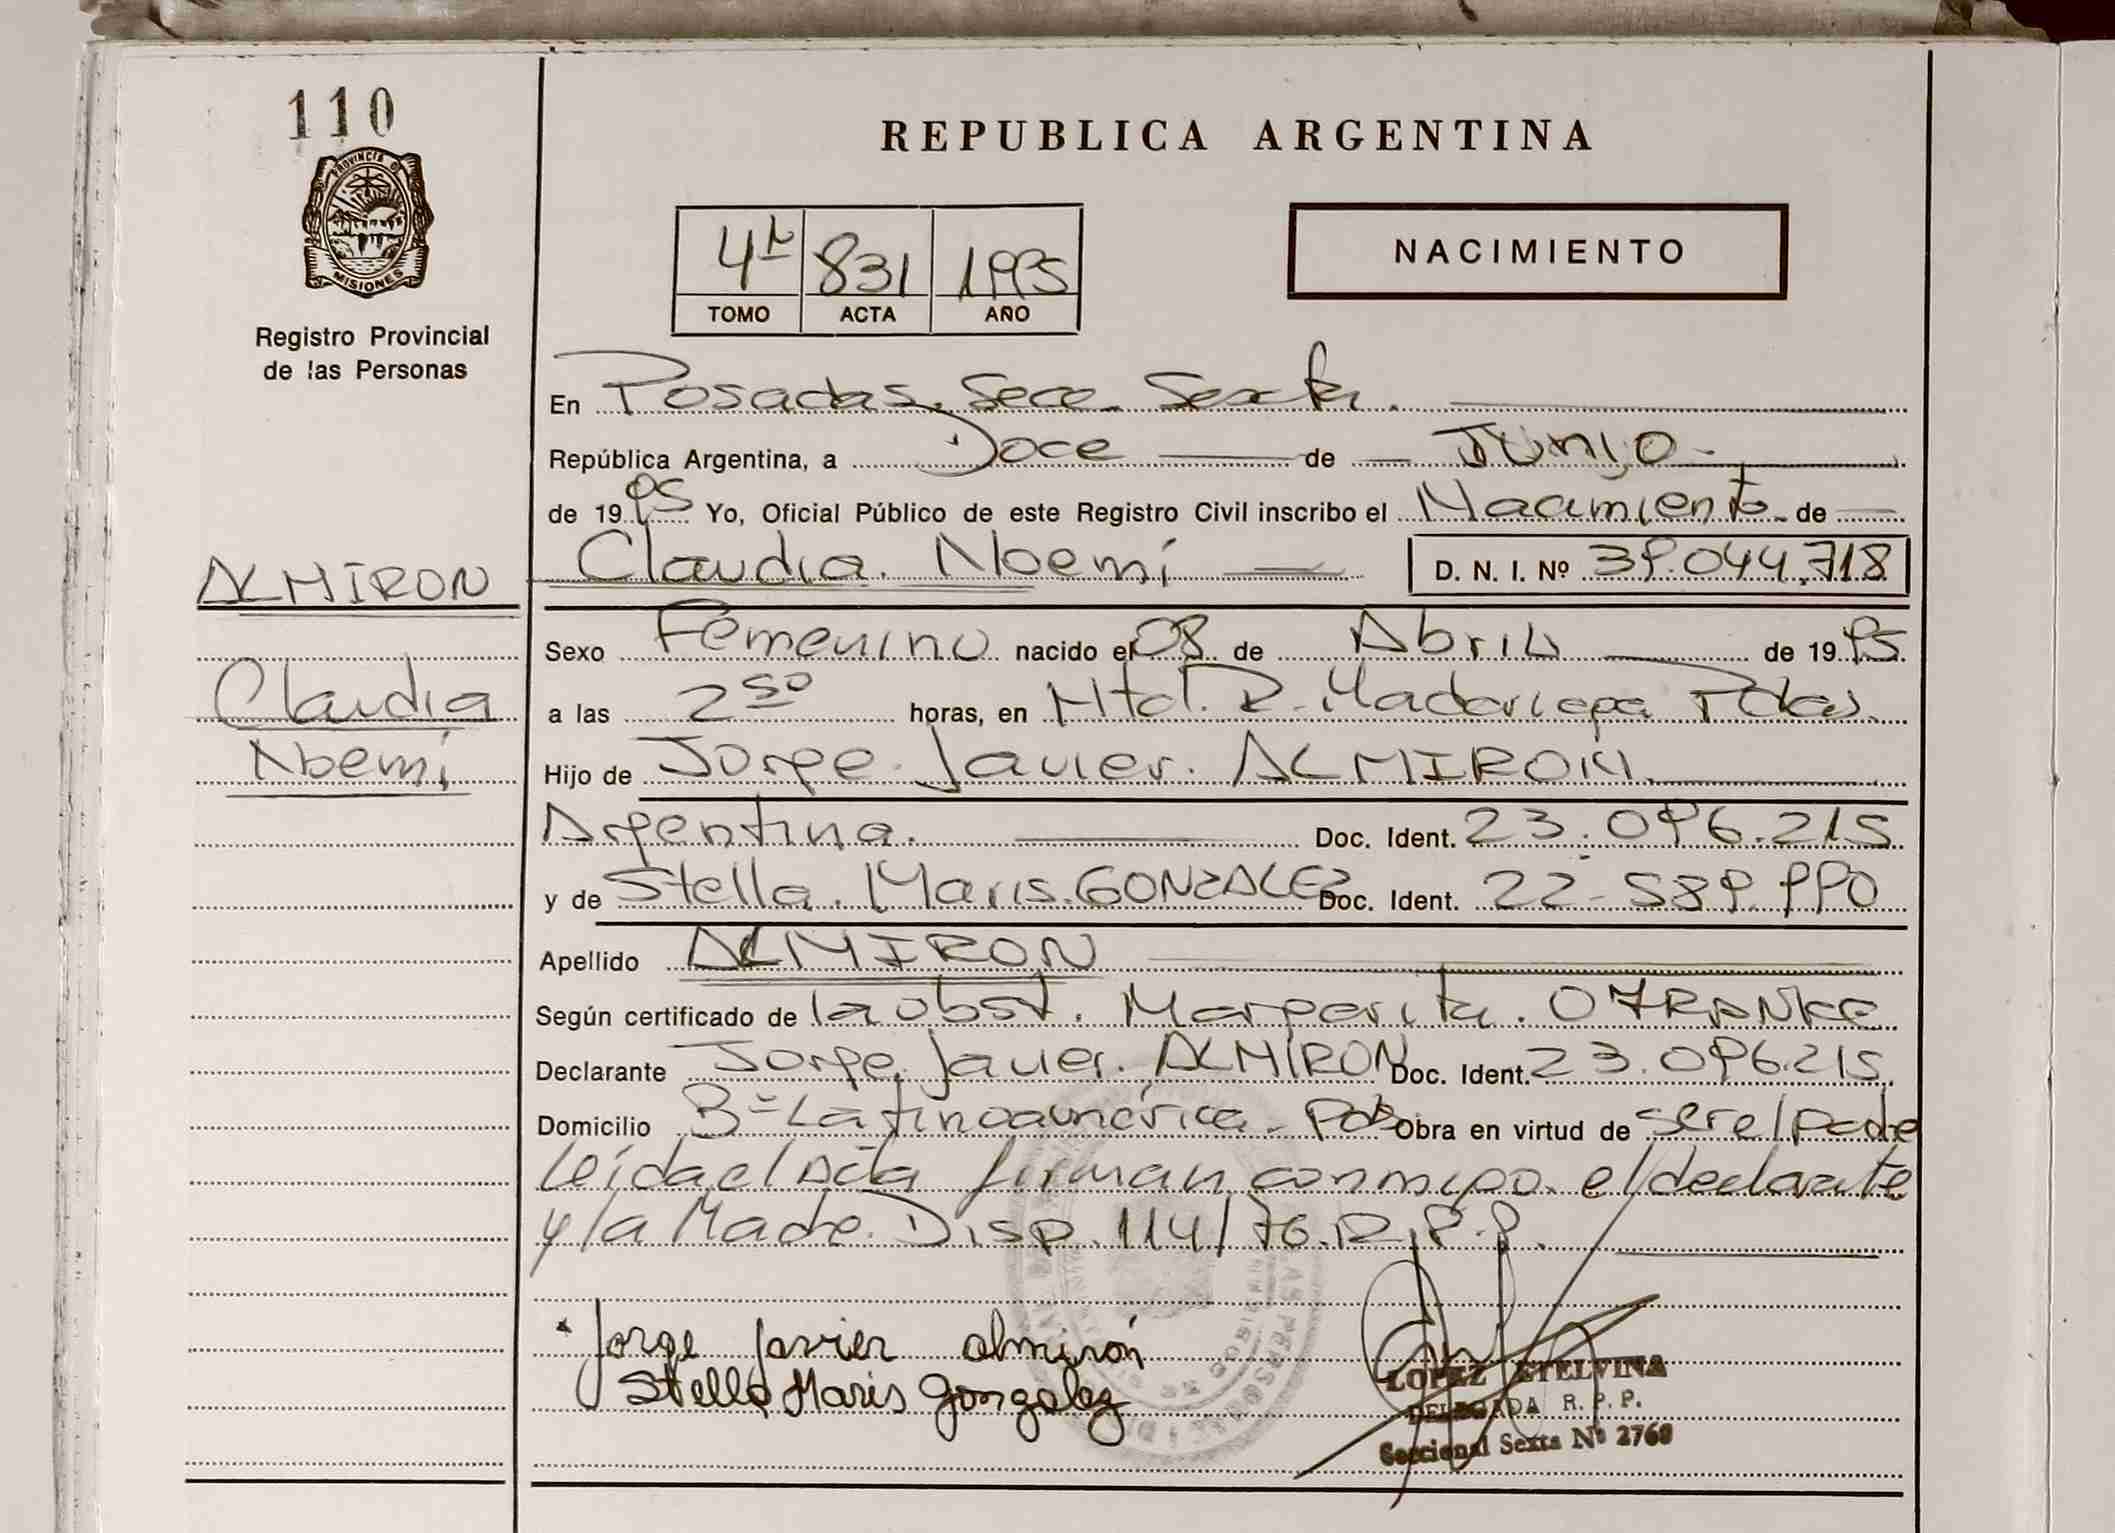 110
PROVINCIA D
MISIONES
Registro Provincial
de las Personas
REPUBLICA ARGENTINA
4º 831 1995
TOMO ACTA AÑO
NACIMIENTO
En Posadas, Secc. Sexta.
República Argentina, a Doce de Junio
de 1995 Yo, Oficial Público de este Registro Civil inscribo el Nacimiento de
ALMIRON
Claudia Noemí
Claudia. Noemí D. N. I. Nº 39.044.718
Sexo Femenino nacido el 08 de Abril de 1995
a las 2⁵⁰ horas, en Htal. R. Madariaga Pdas.
Hijo de Jorge Javier ALMIRON
Argentina. Doc. Ident. 23.096.215
y de Stella Maris GONZALEZ Doc. Ident. 22.589.990
Apellido ALMIRON
Según certificado de la obst. Margarita
Declarante Jorge Javier ALMIRON Doc. Ident. 23.096.215
Domicilio Bº Latinoamérica - Pdas Obra en virtud de ser el padre
leída el Acta firman conmigo el declarante
y la Madre. Disp. 114/76.R.P.P.
Jorge Javier almirón
Stella Maris Gonzalez
LOPEZ ETELVINA
DELEGADA R. P. P.
Seccional Sexta Nº 2760